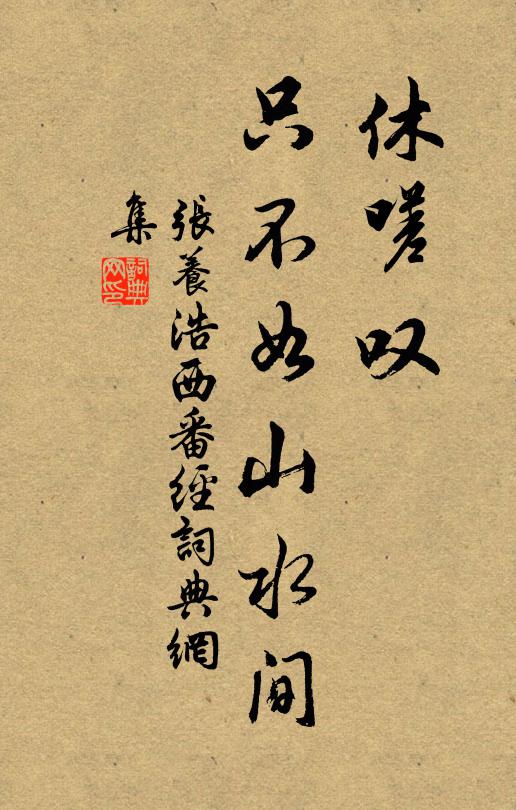 休嗟叹
只不如山水间
張養浩西番經詞典網
集
詞典
网印